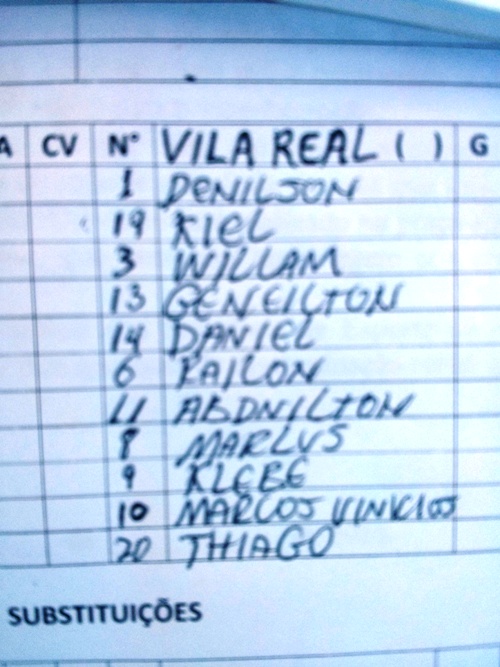 A CV Nº VILA REAL ( ) G
1 DENILSON
19 KIEL
3 WILLAM
13 GENEILTON
14 DANIEL
6 KAILON
11 ABDNILTON
8 MARLUS
9 KLEBE
10 MARCOS VINICIOS
20 THIAGO
SUBSTITUIÇÕES